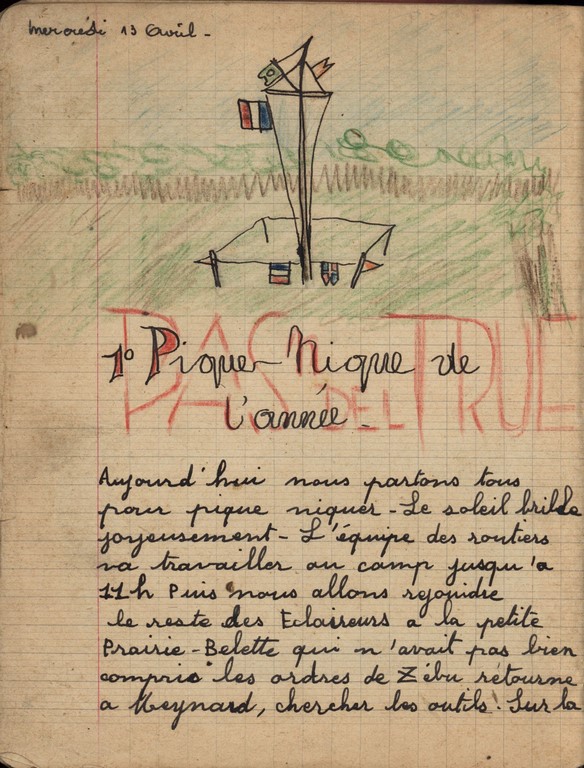 Mercredi 13 Avril -
PAS DEL TRUE
1° Pique-Nique de
l'année -
Aujourd'hui nous partons tous
pour pique niquer - Le soleil brille
joyeusement - L'équipe des routiers
va travailler au camp jusqu'a
11h Puis nous allons rejoindre
le reste des Eclaireurs a la petite
Prairie - Belette qui n'avait pas bien
compris les ordres de Zébu retourne
a Meynard, chercher les outils. Sur la